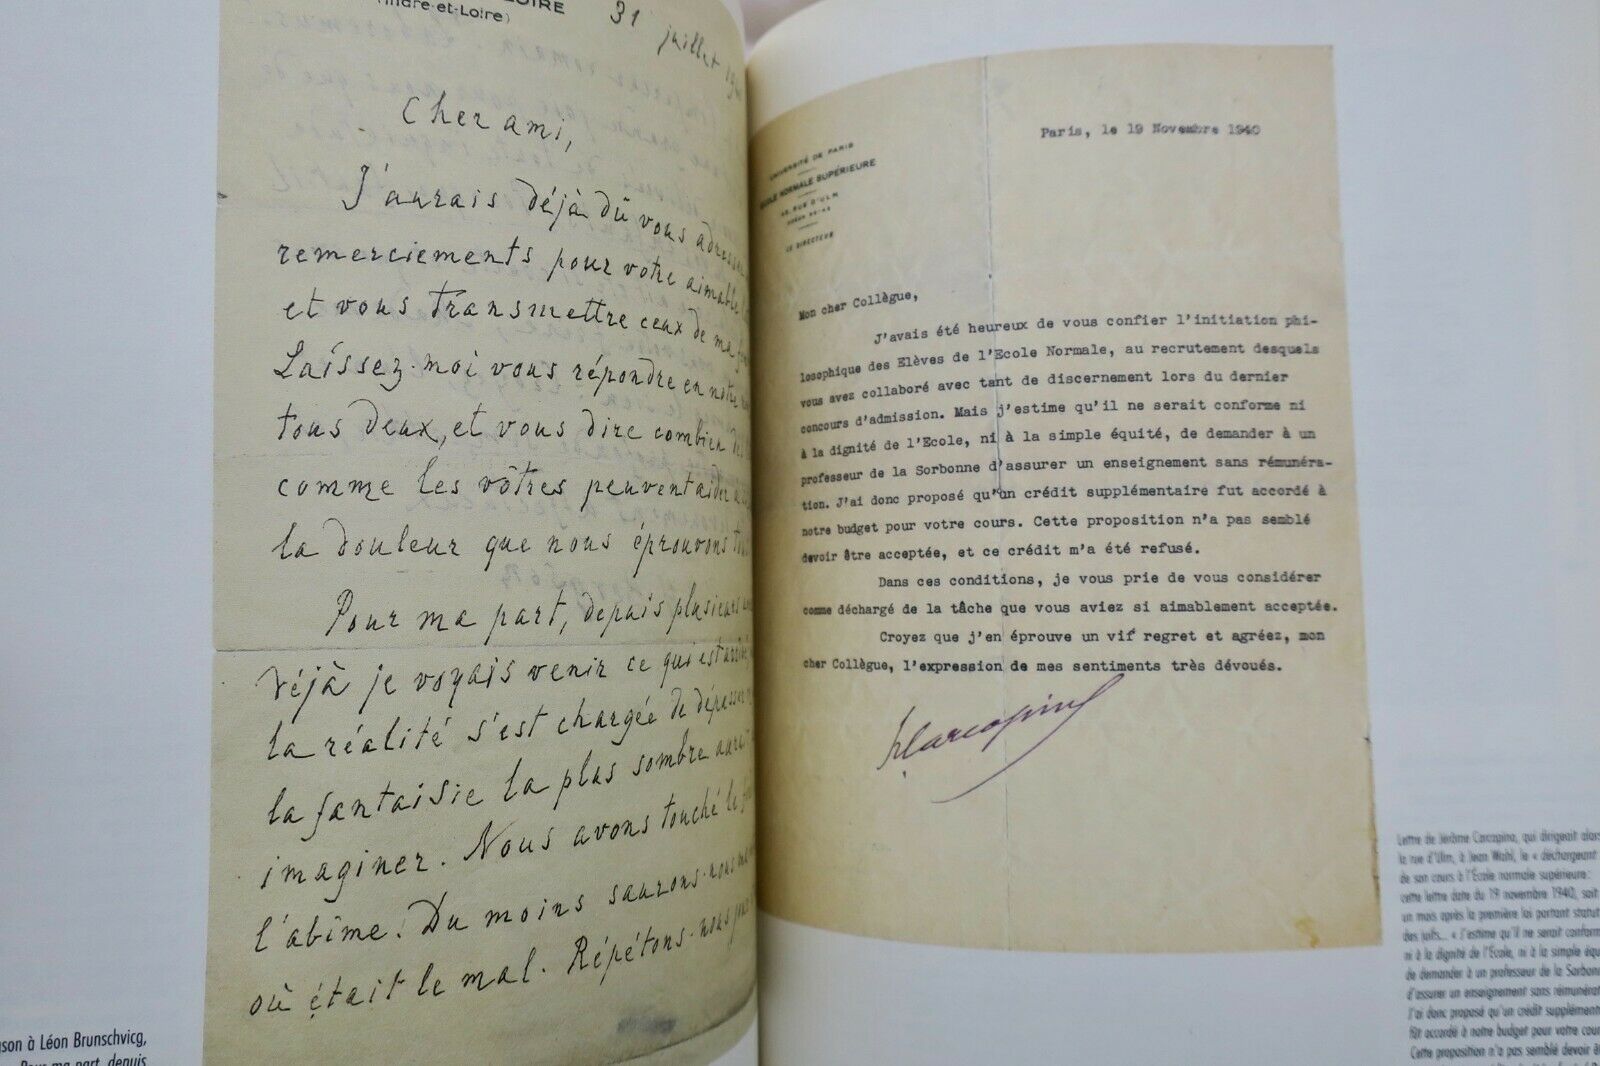 LOIRE
(Indre-et-Loire)
31 juillet
Cher ami,
J'aurais déjà dû vous adresser
remerciements pour votre aimable
et vous transmettre ceux de ma
Laissez-moi vous répondre en notre
tous deux, et vous dire combien
comme les vôtres peuvent aider
la douleur que nous éprouvons
Pour ma part, depuis plusieurs
déjà je voyais venir ce qui est arrivé
la réalité s'est chargée de dépasser
la fantaisie la plus sombre aurait
imaginer. Nous avons touché le
l'abîme. Du moins saurons-nous
où était le mal. Répétons-nous
son à Léon Brunschvicg,
Pour ma part, depuis
UNIVERSITÉ DE PARIS
ÉCOLE NORMALE SUPÉRIEURE
45, RUE D'ULM
LE DIRECTEUR
Paris, le 19 Novembre 1940
Mon cher Collègue,
J'avais été heureux de vous confier l'initiation phi-
losophique des Elèves de l'Ecole Normale, au recrutement desquels
vous avez collaboré avec tant de discernement lors du dernier
concours d'admission. Mais j'estime qu'il ne serait conforme ni
à la dignité de l'Ecole, ni à la simple équité, de demander à un
professeur de la Sorbonne d'assurer un enseignement sans rémunéra-
tion. J'ai donc proposé qu'un crédit supplémentaire fut accordé à
notre budget pour votre cours. Cette proposition n'a pas semblé
devoir être acceptée, et ce crédit m'a été refusé.
Dans ces conditions, je vous prie de vous considérer
comme déchargé de la tâche que vous aviez si aimablement acceptée.
Croyez que j'en éprouve un vif regret et agréez, mon
cher Collègue, l'expression de mes sentiments très dévoués.
Lettre de Jérôme Carcopino, qui dirigeait alors
la rue d'Ulm, à Jean Wahl, le « déchargeant
de son cours à l'École normale supérieure :
cette lettre date du 19 novembre 1940, soit
un mois après la première loi portant statut
des juifs... « J'estime qu'il ne serait conform
ni à la dignité de l'École, ni à la simple équ
de demander à un professeur de la Sorbonn
d'assurer un enseignement sans rémunérat
J'ai donc proposé qu'un crédit supplément
fût accordé à notre budget pour votre cour
Cette proposition n'a pas semblé devoir êt